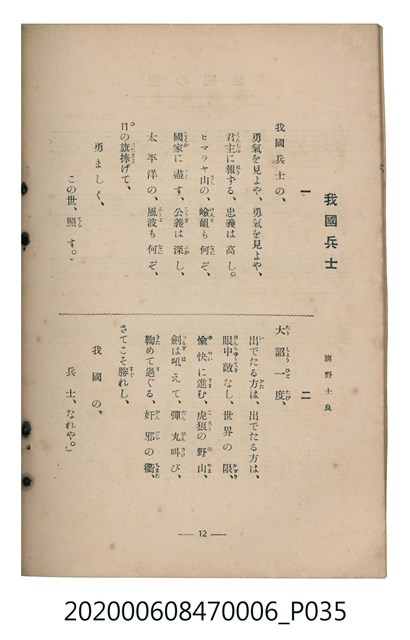 我國兵士
旗野士良
一
我國兵士の、
勇氣を見よや、勇氣を見よや、
君主に報ずる、忠義は高し。
ヒマラヤ山の、嶮岨も何ぞ、
國家に盡す、公義は深し、
太平洋の、風波も何ぞ、
日の旗捧げて、
勇ましく、
この世、照す。」
二
大詔一度、
出でたる方は、出でたる方は、
眼中敵なし、世界の限、
愉快に進む、虎狼の野山、
劍は吼えて、彈丸叫び、
鞠めて過ぐる、奸邪の衢、
さてこそ勝れし、
我國の、
兵士、なれや。」
— 12 —
202000608470006_P035